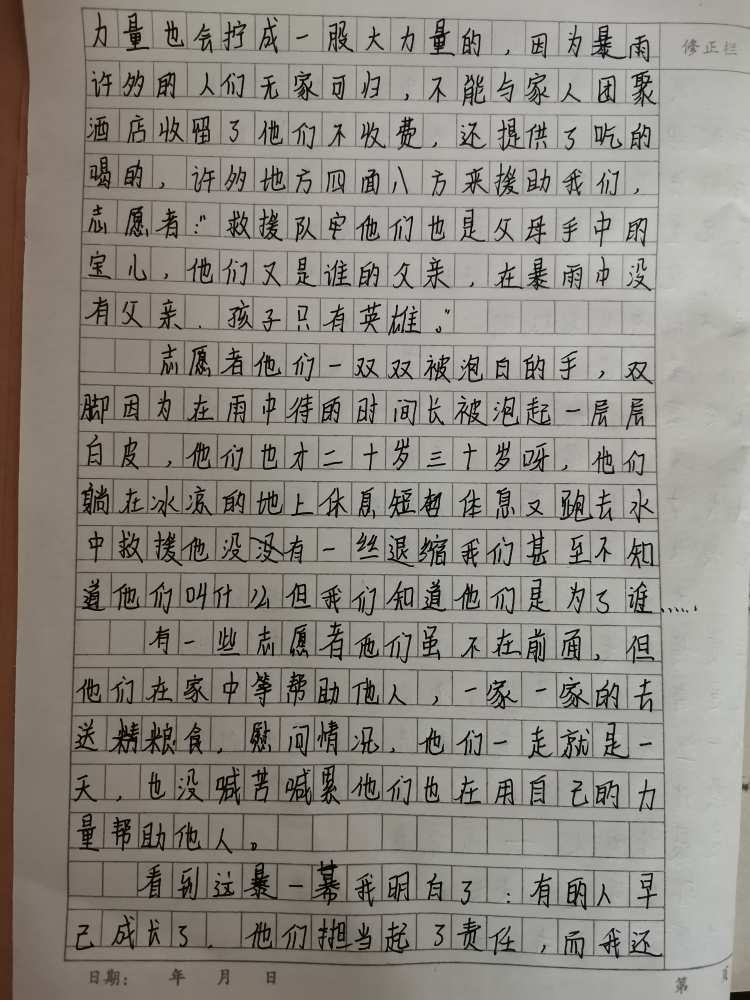 力量也会拧成一股大力量的，因为暴雨
修正栏
许多的人们无家可归，不能与家人团聚
酒店收留了他们不收费，还提供了吃的
喝的，许多地方四面八方来援助我们，
志愿者：“救援队它他们也是父母手中的
宝心，他们又是谁的父亲，在暴雨中没
有父亲，孩子只有英雄。”
志愿者他们一双双被泡白的手，双
脚因为在雨中待的时间长被泡起一层层
白皮，他们也才二十岁三十岁呀，他们
躺在冰凉的地上休息短暂休息又跑去水
中救援他没没有一丝退缩我们甚至不知
道他们叫什么但我们知道他们是为了谁……
有一些志愿者他们虽不在前面，但
他们在家中等帮助他人，一家一家的去
送精粮食，慰问情况，他们一走就是一
天，也没喊苦喊累他们也在用自己的力
量帮助他人。
看到这暴一幕我明白了：有的人早
已成长了，他们担当起了责任，而我还
日期： 年 月 日
第 页